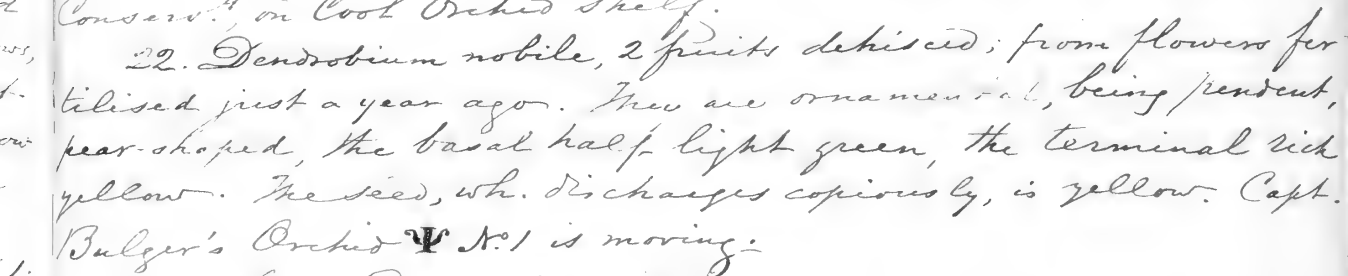 Conserv.y, on Cool Orchid Shelf.
22. Dendrobium nobile, 2 fruits dehisced; from flowers fer-
tilised just a year ago. They are ornamental, being pendent,
pear-shaped, the basal half light green, the terminal rich
yellow. The seed, wh. discharges copiously, is yellow. Capt.
Bulger's Orchid Ψ No. 1 is moving.